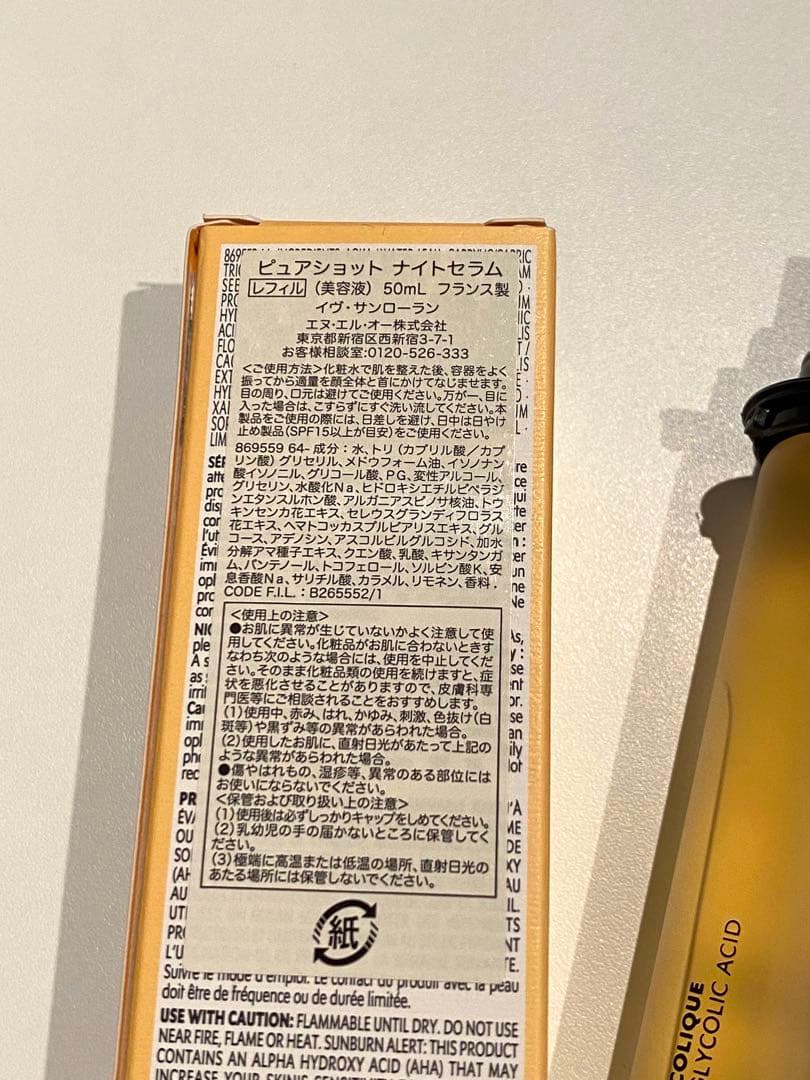 ピュアショット ナイトセラム
レフィル (美容液) 50mL フランス製
イヴ・サンローラン
エヌ・エル・オー株式会社
東京都新宿区西新宿3-7-1
お客様相談室:0120-526-333
<ご使用方法>化粧水で肌を整えた後、容器をよく
振ってから適量を顔全体と首にかけてなじませます。
目の周り、口元は避けてご使用ください。万が一、目に
入った場合は、こすらずにすぐ洗い流してください。本
製品をご使用の際には、日差しを避け、日中は日やけ
止め製品(SPF15以上が目安)をご使用ください。
869559 64- 成分:水、トリ(カプリル酸/カプ
リン酸)グリセリル、メドウフォーム油、イソノナン
酸イソノニル、グリコール酸、PG、変性アルコール、
グリセリン、水酸化Na、ヒドロキシエチルピペラジ
ンエタンスルホン酸、アルガニアスピノサ核油、トウ
キンセンカ花エキス、セレウスグランディフロラス
花エキス、ヘマトコッカスプルビアリスエキス、グル
コース、アデノシン、アスコルビルグルコシド、加水
分解アマ種子エキス、クエン酸、乳酸、キサンタンガ
ム、パンテノール、トコフェロール、ソルビン酸K、安
息香酸Na、サリチル酸、カラメル、リモネン、香料.
CODE F.I.L. : B265552/1
<使用上の注意>
●お肌に異常が生じていないかよく注意して使
用してください。化粧品がお肌に合わないときす
なわち次のような場合には、使用を中止してくだ
さい。そのまま化粧品類の使用を続けますと、症
状を悪化させることがありますので、皮膚科専
門医等にご相談されることをおすすめします。
(1)使用中、赤み、はれ、かゆみ、刺激、色抜け(白
斑等)や黒ずみ等の異常があらわれた場合。
(2)使用したお肌に、直射日光があたって上記の
ような異常があらわれた場合。
●傷やはれもの、湿疹等、異常のある部位には
お使いにならないでください。
<保管および取り扱い上の注意>
(1)使用後は必ずしっかりキャップをしめてください。
(2)乳幼児の手の届かないところに保管してく
ださい。
(3)極端に高温または低温の場所、直射日光の
あたる場所には保管しないでください。
紙
Suivre le mode d'emploi. Le contact du produit avec la peau
doit être de fréquence ou de durée limitée.
USE WITH CAUTION: FLAMMABLE UNTIL DRY. DO NOT USE
NEAR FIRE, FLAME OR HEAT. SUNBURN ALERT: THIS PRODUCT
CONTAINS AN ALPHA HYDROXY ACID (AHA) THAT MAY
INCREASE YOUR SKIN'S SENSITIVITY
COLIQUE
GLYCOLIC ACID